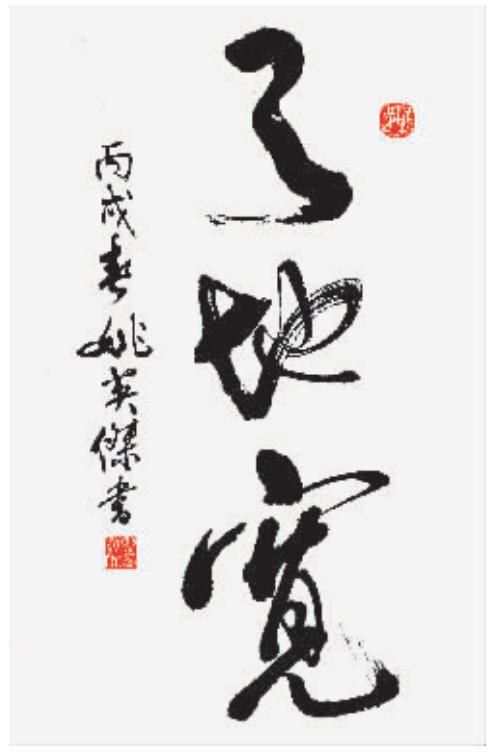 天地寬
丙戌春姚英傑書